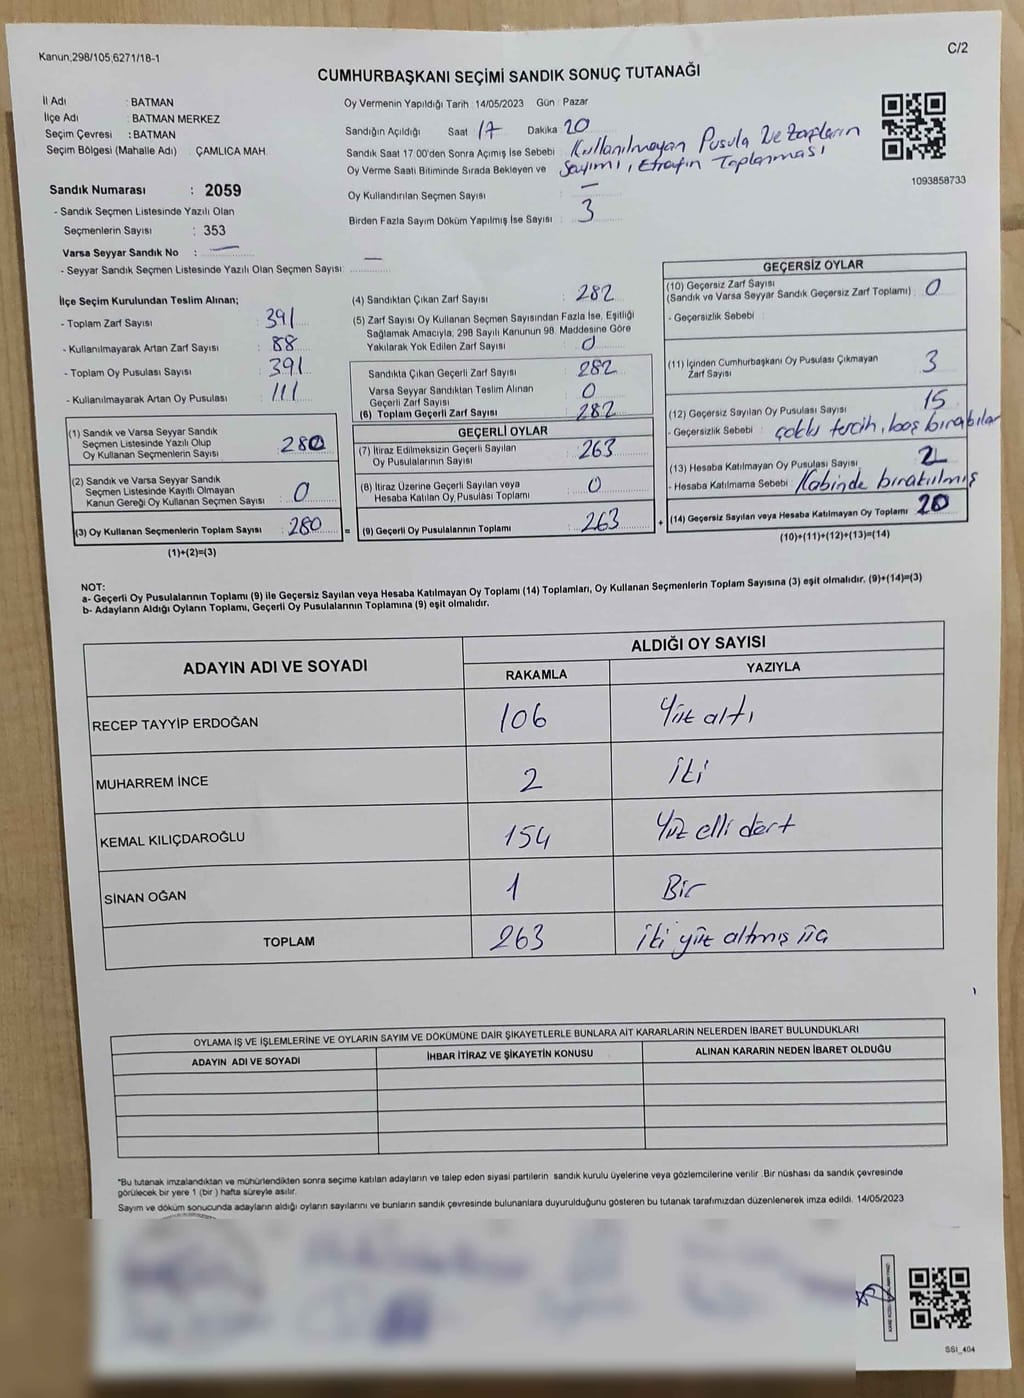 Kanun;298/105,6271/18-1
C/2
CUMHURBAŞKANI SEÇİMİ SANDIK SONUÇ TUTANAĞI
İl Adı : BATMAN
İlçe Adı : BATMAN MERKEZ
Seçim Çevresi : BATMAN
Seçim Bölgesi (Mahalle Adı) : ÇAMLICA MAH.
Oy Vermenin Yapıldığı Tarih : 14/05/2023 Gün : Pazar
Sandığın Açıldığı Saat 17 Dakika 20
Sandık Saat 17:00'den Sonra Açımış İse Sebebi : Kullanılmayan Pusula Ve zarfların
Oy Verme Saati Bitiminde Sırada Bekleyen ve Sayımı, Etrafın Toplanması
Oy Kullandırılan Seçmen Sayısı : —
Birden Fazla Sayım Döküm Yapılmış İse Sayısı : 3
1093858733
Sandık Numarası : 2059
- Sandık Seçmen Listesinde Yazılı Olan
Seçmenlerin Sayısı : 353
Varsa Seyyar Sandık No : —
- Seyyar Sandık Seçmen Listesinde Yazılı Olan Seçmen Sayısı: —
İlçe Seçim Kurulundan Teslim Alınan;
- Toplam Zarf Sayısı : 391
- Kullanılmayarak Artan Zarf Sayısı : 88
- Toplam Oy Pusulası Sayısı : 391
- Kullanılmayarak Artan Oy Pusulası : 111
(1) Sandık ve Varsa Seyyar Sandık
Seçmen Listesinde Yazılı Olup
Oy Kullanan Seçmenlerin Sayısı : 280
(2) Sandık ve Varsa Seyyar Sandık
Seçmen Listesinde Kayıtlı Olmayan
Kanun Gereği Oy Kullanan Seçmen Sayısı : 0
(3) Oy Kullanan Seçmenlerin Toplam Sayısı : 280
(1)+(2)=(3)
(4) Sandıktan Çıkan Zarf Sayısı : 282
(5) Zarf Sayısı Oy Kullanan Seçmen Sayısından Fazla İse, Eşitliği
Sağlamak Amacıyla, 298 Sayılı Kanunun 98. Maddesine Göre
Yakılarak Yok Edilen Zarf Sayısı : 0
Sandıkta Çıkan Geçerli Zarf Sayısı : 282
Varsa Seyyar Sandıktan Teslim Alınan
Geçerli Zarf Sayısı : 0
(6) Toplam Geçerli Zarf Sayısı : 282
GEÇERLİ OYLAR
(7) İtiraz Edilmeksizin Geçerli Sayılan
Oy Pusulalarının Sayısı : 263
(8) İtiraz Üzerine Geçerli Sayılan veya
Hesaba Katılan Oy Pusulası Toplamı : 0
= (9) Geçerli Oy Pusulalarının Toplamı : 263
GEÇERSİZ OYLAR
(10) Geçersiz Zarf Sayısı
(Sandık ve Varsa Seyyar Sandık Geçersiz Zarf Toplamı) : 0
- Geçersizlik Sebebi :
(11) İçinden Cumhurbaşkanı Oy Pusulası Çıkmayan
Zarf Sayısı : 3
(12) Geçersiz Sayılan Oy Pusulası Sayısı : 15
- Geçersizlik Sebebi : çoklu tercih, boş bırakılar
(13) Hesaba Katılmayan Oy Pusulası Sayısı : 2
- Hesaba Katılmama Sebebi : Kabinde bırakılmış
+ (14) Geçersiz Sayılan veya Hesaba Katılmayan Oy Toplamı : 20
(10)+(11)+(12)+(13)=(14)
NOT:
a- Geçerli Oy Pusulalarının Toplamı (9) ile Geçersiz Sayılan veya Hesaba Katılmayan Oy Toplamı (14) Toplamları, Oy Kullanan Seçmenlerin Toplam Sayısına (3) eşit olmalıdır. (9)+(14)=(3)
b- Adayların Aldığı Oyların Toplamı, Geçerli Oy Pusulalarının Toplamına (9) eşit olmalıdır.
ADAYIN ADI VE SOYADI ALDIĞI OY SAYISI
RAKAMLA YAZIYLA
RECEP TAYYİP ERDOĞAN 106 Yüz altı
MUHARREM İNCE 2 iki
KEMAL KILIÇDAROĞLU 154 Yüz elli dört
SİNAN OĞAN 1 Bir
TOPLAM 263 iki yüz altmış üç
OYLAMA İŞ VE İŞLEMLERİNE VE OYLARIN SAYIM VE DÖKÜMÜNE DAİR ŞİKAYETLERLE BUNLARA AİT KARARLARIN NELERDEN İBARET BULUNDUKLARI
ADAYIN ADI VE SOYADI İHBAR İTİRAZ VE ŞİKAYETİN KONUSU ALINAN KARARIN NEDEN İBARET OLDUĞU
*Bu tutanak imzalandıktan ve mühürlendikten sonra seçime katılan adayların ve talep eden siyasi partilerin sandık kurulu üyelerine veya gözlemcilerine verilir. Bir nüshası da sandık çevresinde
görülecek bir yere 1 (bir) hafta süreyle asılır.
Sayım ve döküm sonucunda adayların aldığı oyların sayılarını ve bunların sandık çevresinde bulunanlara duyurulduğunu gösteren bu tutanak tarafımızdan düzenlenerek imza edildi. 14/05/2023
SSI_404